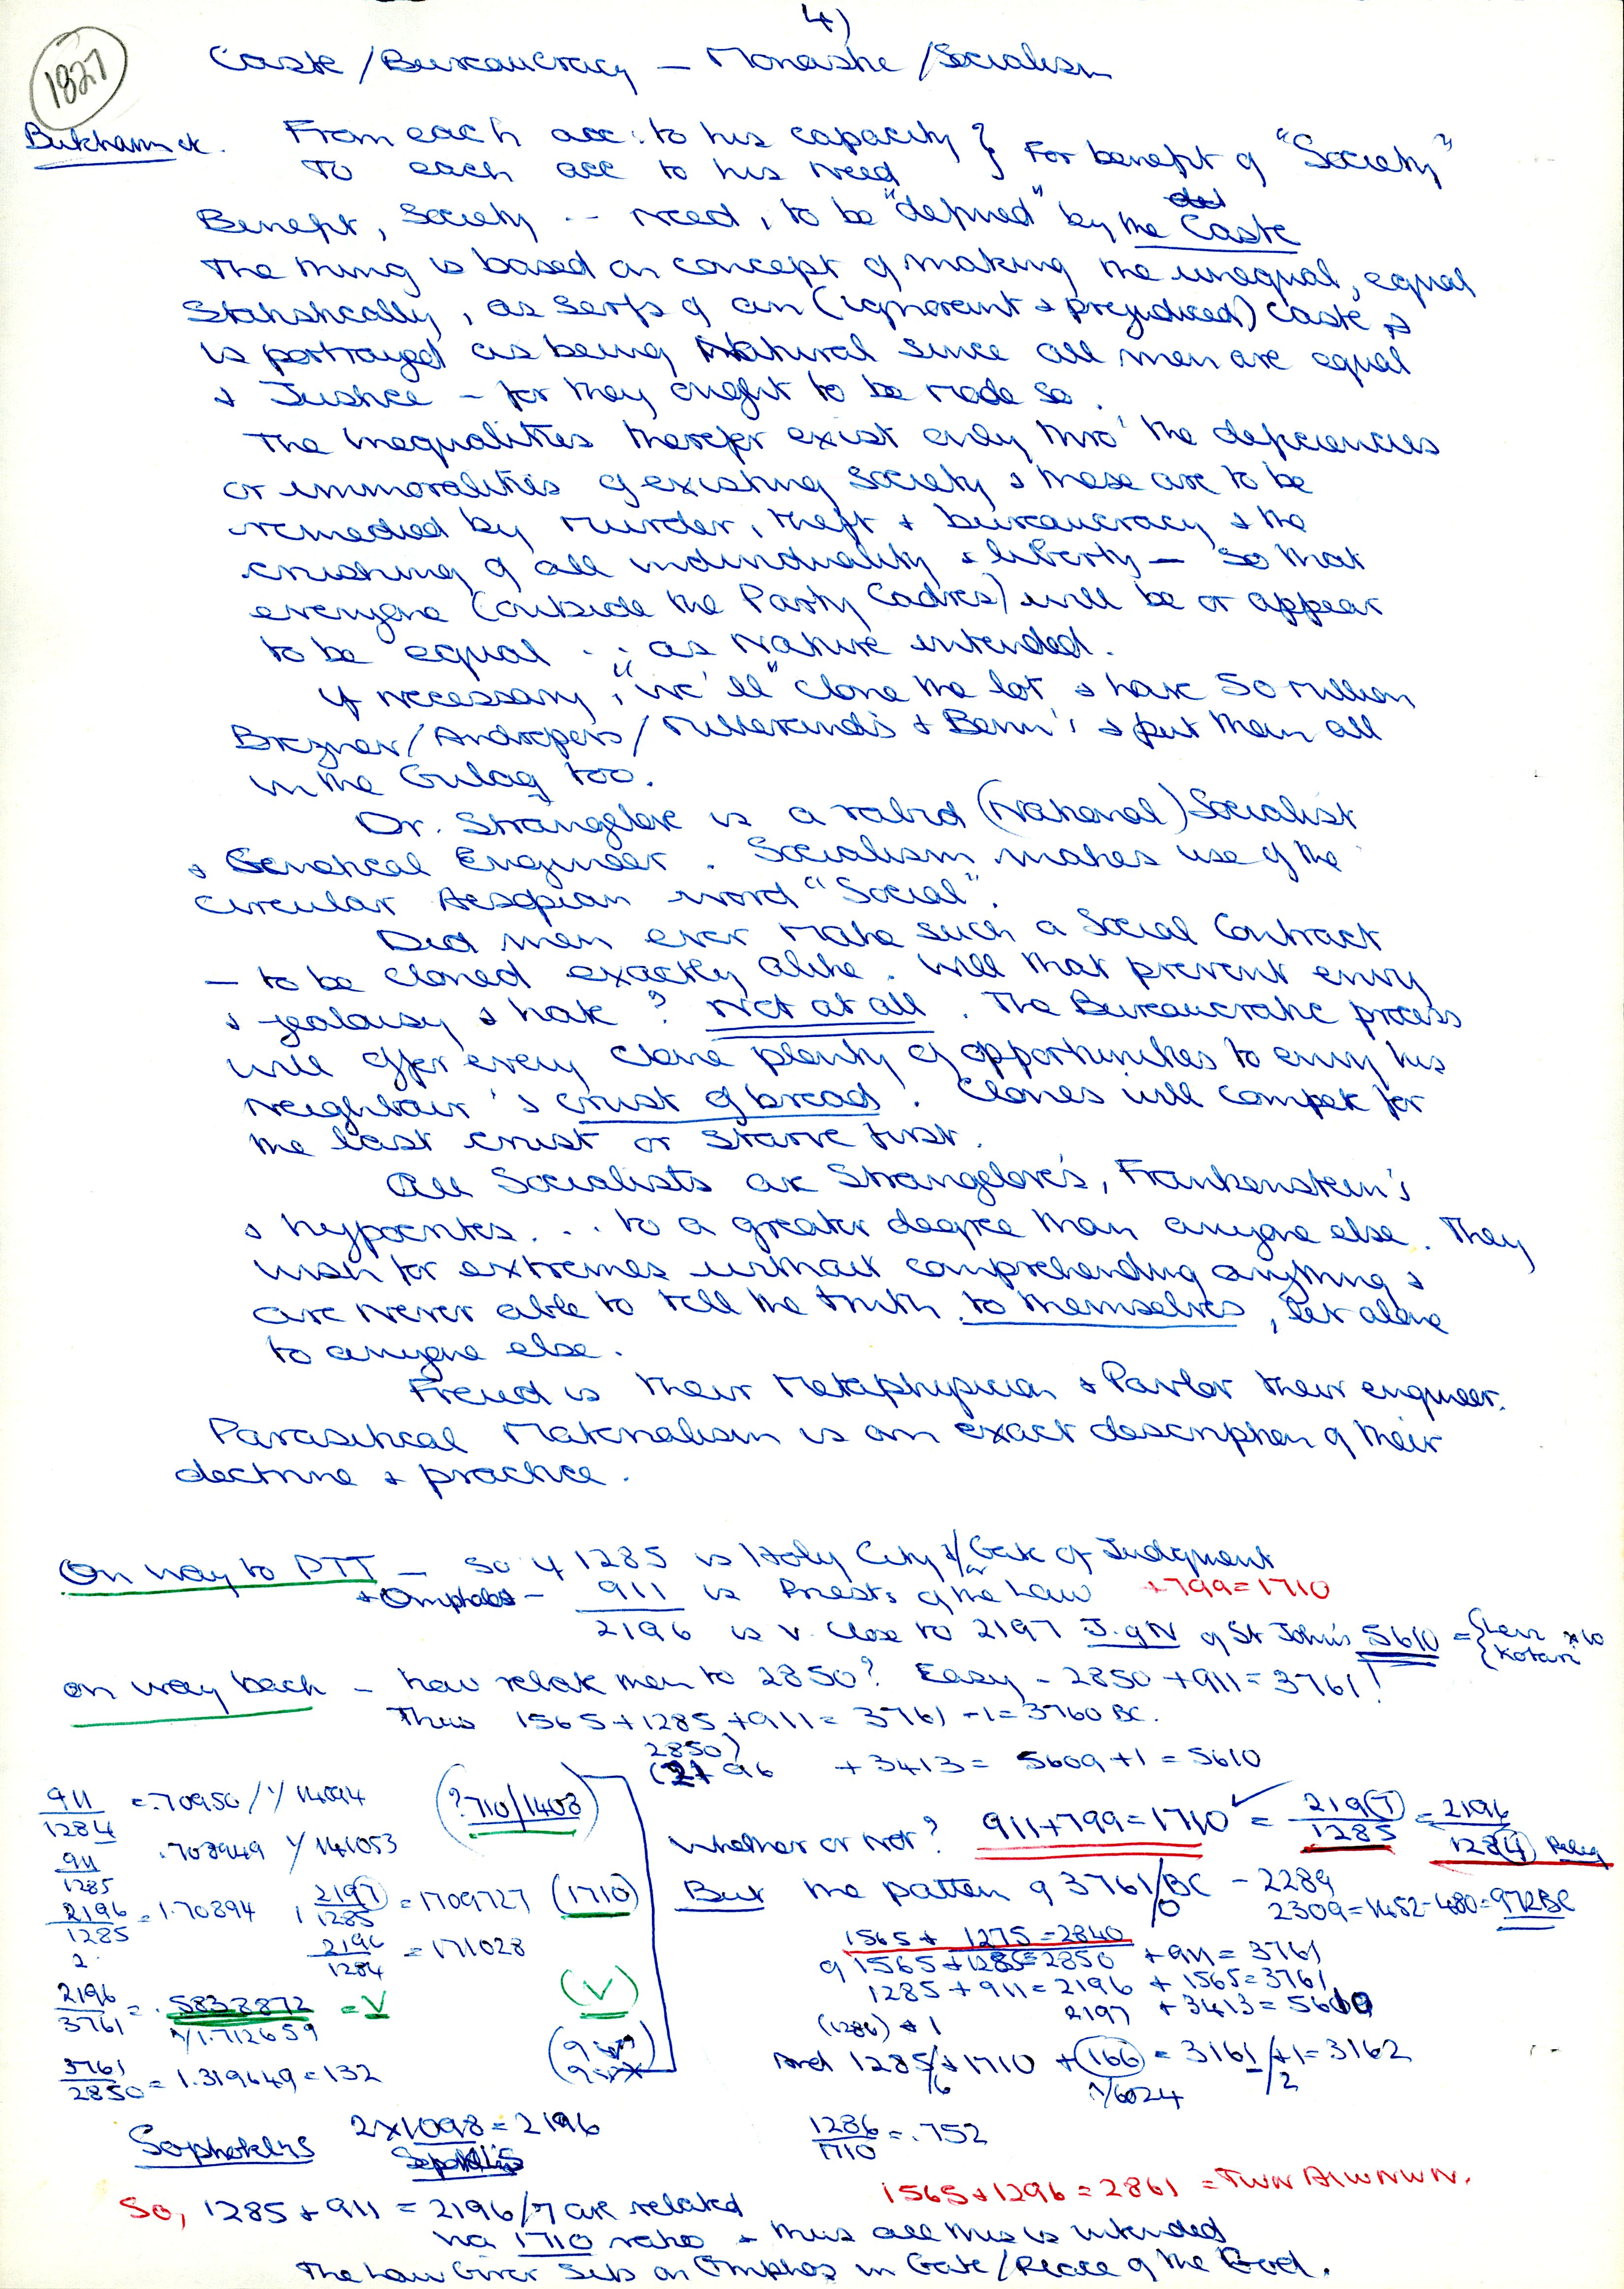 4)
1827
Caste / Bureaucracy – Monashe / Socialism
From each acc: to his capacity }
To each acc to his need } For benefit of "Society"
Benefit, Society -- need, to be "defined" by the Caste
The thing is based on concept of making the unequal, equal
Statistically, as serfs of an (ignorant & prejudiced) caste &
is portrayed as being Natural since all men are equal
& Justice – for they ought to be made so.
The Inequalities therefor exist only thro' the deficiencies
or immoralities of existing Society & these are to be
remedied by murder, theft & bureaucracy & the
crushing of all individuality & liberty – so that
everyone (outside the Party Cadres) will be or appear
to be equal .. as Nature intended.
If necessary, "we'll" clone the lot & have 50 million
Breznev / Andropovs / Mitterand's & Benn's & put them all
in the Gulag too.
Dr. Strangelove is a rabid (National) Socialist
& Genetical Engineer. Socialism makes use of the
circular Aesopian word "Social".
Did men ever make such a Social Contract
– to be cloned exactly alike. Will that prevent envy
& jealousy & hate? Not at all. The Bureaucratic process
will offer every clone plenty of opportunities to envy his
neighbour's crust of bread. Clones will compete for
the last crust or starve first.
All Socialists are Strangelove's, Frankenstein's
& hypocrites... to a greater degree than anyone else. They
wish for extremes without comprehending anything &
are never able to tell the truth to themselves, let alone
to anyone else.
Freud is their Metaphysician & Pavlov their engineer.
Parasitical Materialism is an exact description of their
doctrine & practice.
On way to PTT – So if 1285 is Holy City &/or Gate of Judgment
+ Omphalos – 911 is Priests of the Law +799=1710
2196 is v. close to 2197 J. of N of St John's 5610 = { Levi x10
on way back – how relate men to 2850? Easy – 2850 + 911 = 3761!
Thus 1565+1285+911= 3761 -1= 3760 BC.
2850)
(2196 + 3413 = 5609 +1 = 5610
911/1284 = .70950 / 1/ 14094 (?710/1408)
911/1285 .708949 1/ 141053
2196/1285 = 1.70894 2197/1285 = 1709727 (1710)
2196/1284 = 171028
2196/3761 = .5838872 = V (V)
1/1.712659
3761/2850 = 1.319649 = 132
Whether or Not? 911+799=1710 ✓ = 219(7)/1285 = 2196/128(4)
But the pattern of 3761/0 BC – 2289
2309=1452-480=972BC
1565 + 1275 = 2840
of 1565+1285=2850 + 911 = 3761
1285+911=2196 + 1565=3761
2197 + 3413 = 5610
(1286) + 1
And 1285/6 + 1710 + (166) = 3161 /+1= 3162
/2
1/6024
1286/1710 = .752
Sophokles 2x1098 = 2196
1565+1296=2861 = TWN AIWNWN.
So, 1285 + 911 = 2196/7 are related
via 1710 ratio & thus all this is intended
The Law Giver Sits on Omphalos in Gate / Place of the God.